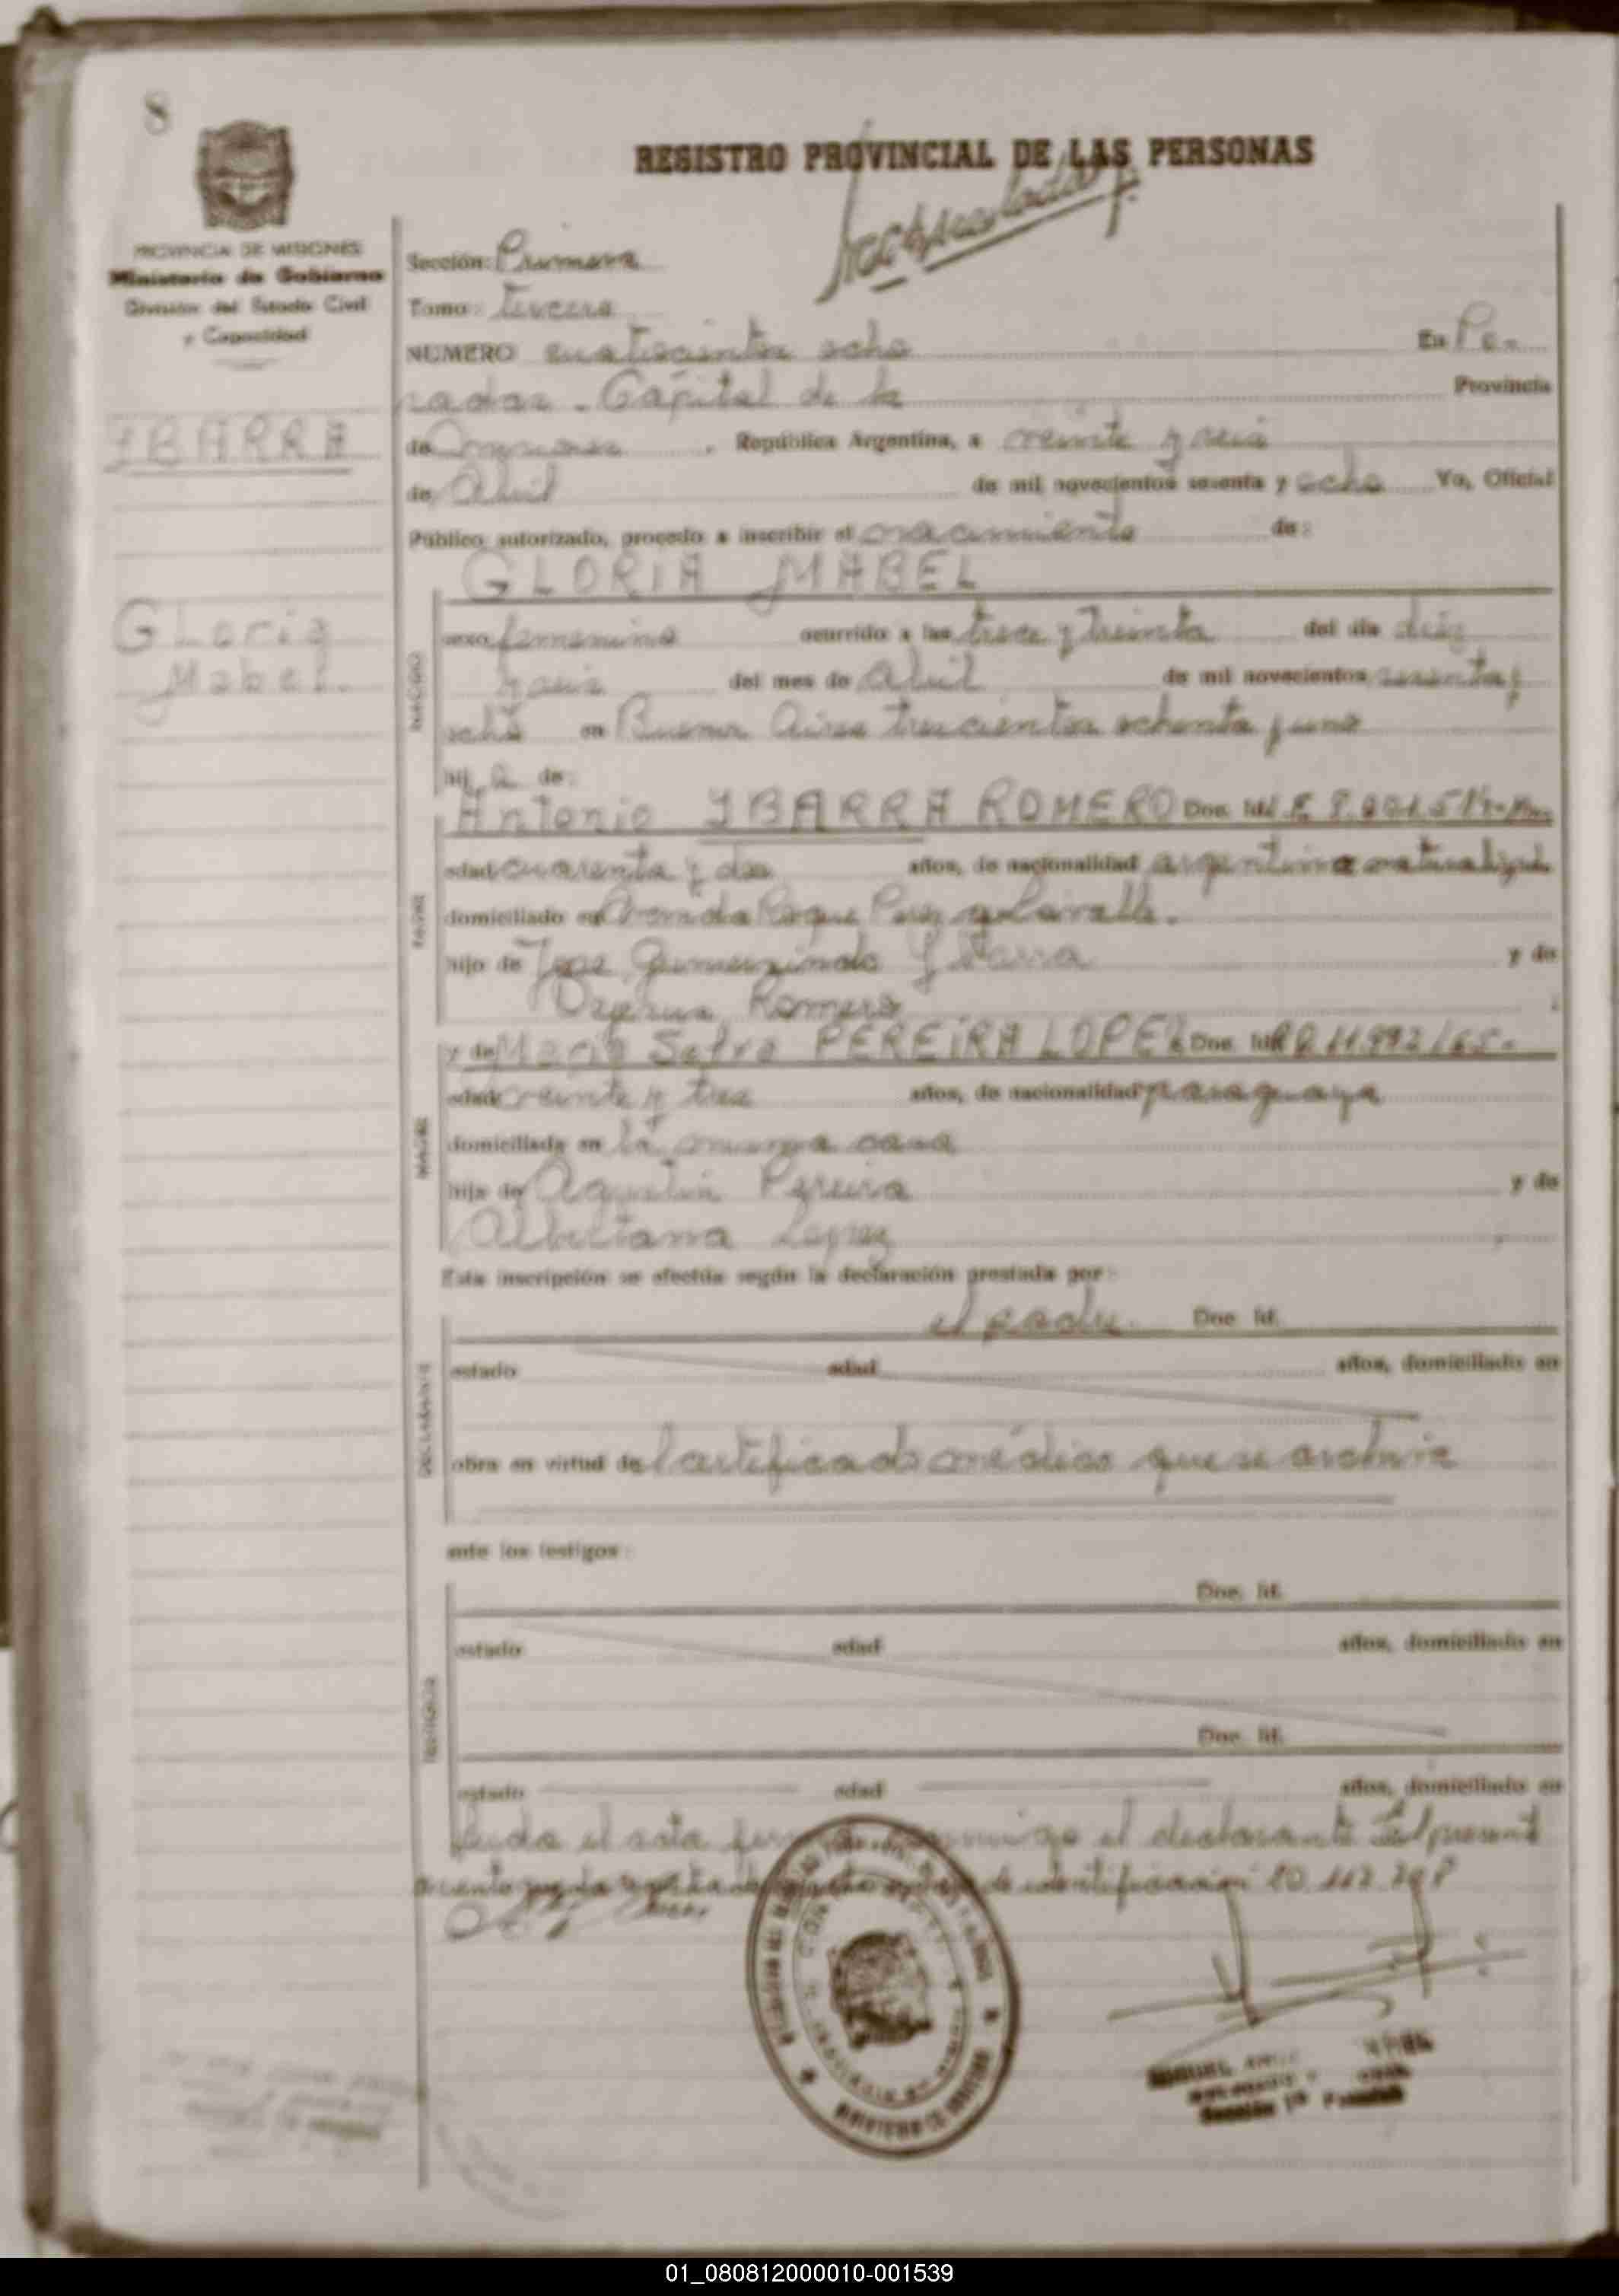 8
REGISTRO PROVINCIAL DE LAS PERSONAS
PROVINCIA DE MISIONES
Ministerio de Gobierno
División del Estado Civil
y Capacidad
Sección: Primera
Tomo: tercero
NUMERO cuatrocientos ocho En Po-
sadas - Capital de la Provincia
IBARRA
de Misiones , República Argentina, a veinte y seis
de Abril de mil novecientos sesenta y ocho Yo, Oficial
Público autorizado, procedo a inscribir el nacimiento de:
GLORIA MABEL
Gloria
Mabel.
NACIDO
sexo femenino ocurrido a las trece y treinta del día diez
y seis del mes de Abril de mil novecientos sesenta y
ocho en Buenos Aires trescientos ochenta y uno
hij a de:
PADRE
Antonio IBARRA ROMERO Doc. Id.
edad cuarenta y dos años, de nacionalidad argentino
domiciliado en Roque Perez y Lavalle.
hijo de Jose Gumercindo Ybarra y de
Romero
MADRE
y de Maria Selva PEREIRA LOPEZ Doc. Id. 11.992/65-
edad veinte y tres años, de nacionalidad paraguaya
domiciliada en la misma casa
hija de Agustin Pereira y de
Lopez
Esta inscripción se efectúa según la declaración prestada por:
el padre. Doc. Id.
DECLARANTE
estado edad años, domiciliado en
obra en virtud de Certificado médico que se archiva
ante los testigos:
Doc. Id.
estado edad años, domiciliado en
TESTIGOS
Doc. Id.
estado edad años, domiciliado en
Leida el acta el declarante
de identificación 20.112.
MINISTERIO DE GOBIERNO
MIGUEL
Sección 1ª Posadas
01_080812000010-001539